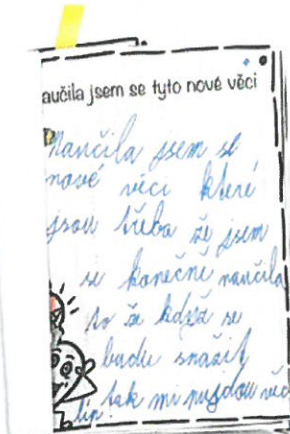 aučila jsem se tyto nové věci
Naučila jsem se
nové věci které
jsou třeba že jsem
se konečně naučila
to že když se
budu snažit
tak mi pujdou věc
líp